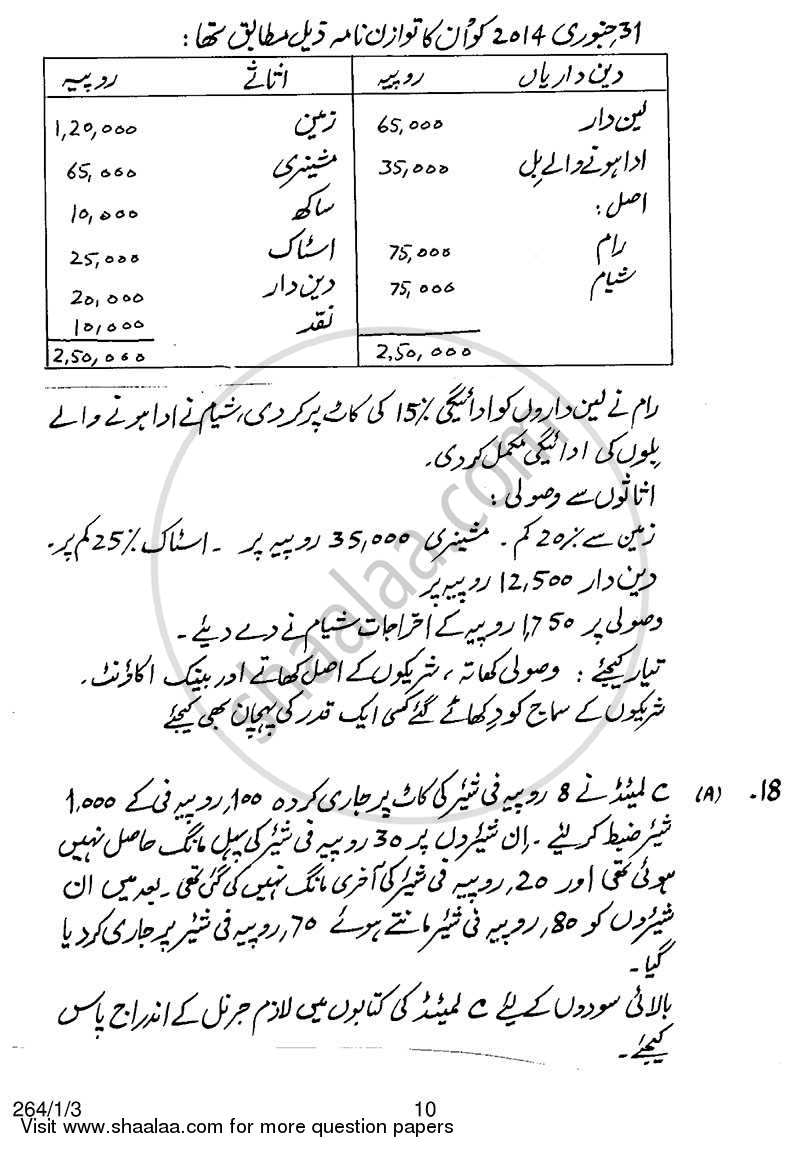 31 جنوری 2014 کو اُن کا توازن نامہ ذیل مطابق تھا:
دین داریاں روپیہ اثاثے روپیہ
لین دار 65,000 زمین 1,20,000
ادا ہونے والے بِل 35,000 مشینری 65,000
اصل: ساکھ 10,000
رام 75,000 اسٹاک 25,000
شیام 75,000 دین دار 20,000
نقد 10,000
2,50,000 2,50,000
رام نے لین داروں کو ادائیگی 15% کی کاٹ پر کر دی، شیام نے ادا ہونے والے
بِلوں کی ادائیگی مکمل کر دی۔
اثاثوں سے وصولی:
زمین سے 20% کم۔ مشینری 35,000 روپیہ پر ۔ اسٹاک 25% کم پر۔
دین دار 12,500 روپیہ پر
وصولی پر 1,750 روپیہ کے اخراجات شیام نے دے دیئے۔
تیار کیجئے: وصولی کھاتہ، شریکوں کے اصل کھاتے اور بینک اکاؤنٹ۔
شریکوں کے سماج کو دکھائے گئے کسی ایک قدر کی پہچان بھی کیجئے
18۔ (A) C لمیٹڈ نے 8 روپیہ فی شیئر کی کاٹ پر جاری کردہ 100 روپیہ فی کے 1,000
شیئر ضبط کر لیئے۔ اِن شیئروں پر 30 روپیہ فی شیئر کی پہلی مانگ حاصل نہیں
ہوئی تھی اور 20 روپیہ فی شیئر کی آخری مانگ نہیں کی گئی تھی۔ بعد میں ان
شیئروں کو 80 روپیہ فی شیئر مانتے ہوئے 70 روپیہ فی شیئر پر جاری کر دیا
گیا۔
بالائی سودوں کے لیئے C لمیٹڈ کی کتابوں میں لازم جرنل کے اندراج پاس
کیجئے۔
shaalaa.com
264/1/3 10
Visit www.shaalaa.com for more question papers